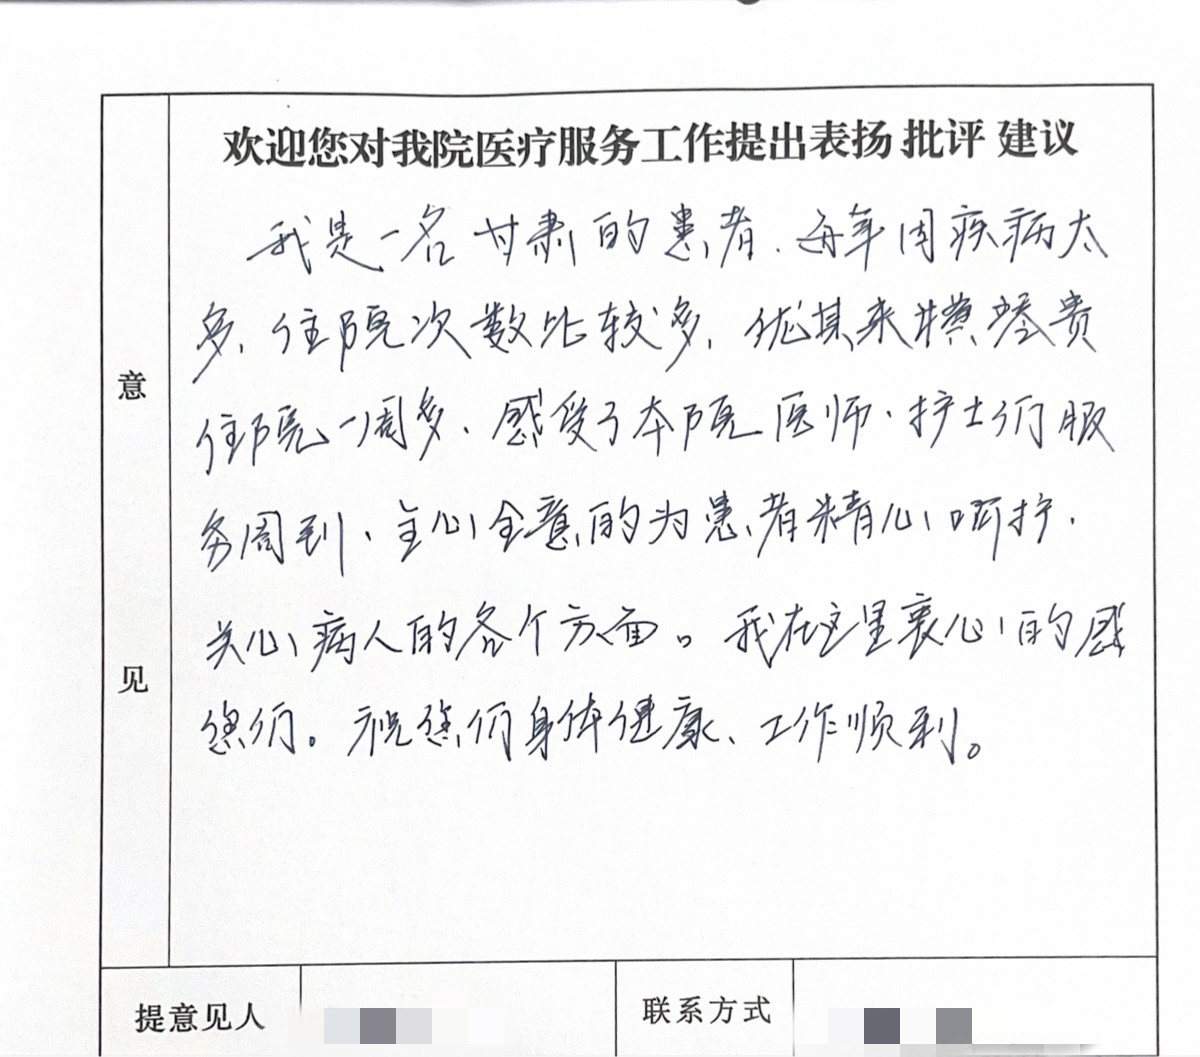 欢迎您对我院医疗服务工作提出表扬 批评 建议
我是一名甘肃的患者、每年因疾病太
多,住院次数比较多,优其来攀贵
住院一周多、感受了本院医师、护士们服
务周到、全心全意的为患者精心呵护、
关心病人的各个方面。我在这里衷心的感
您们。祝您们身体健康、工作顺利。
意
见
提意见人
联系方式